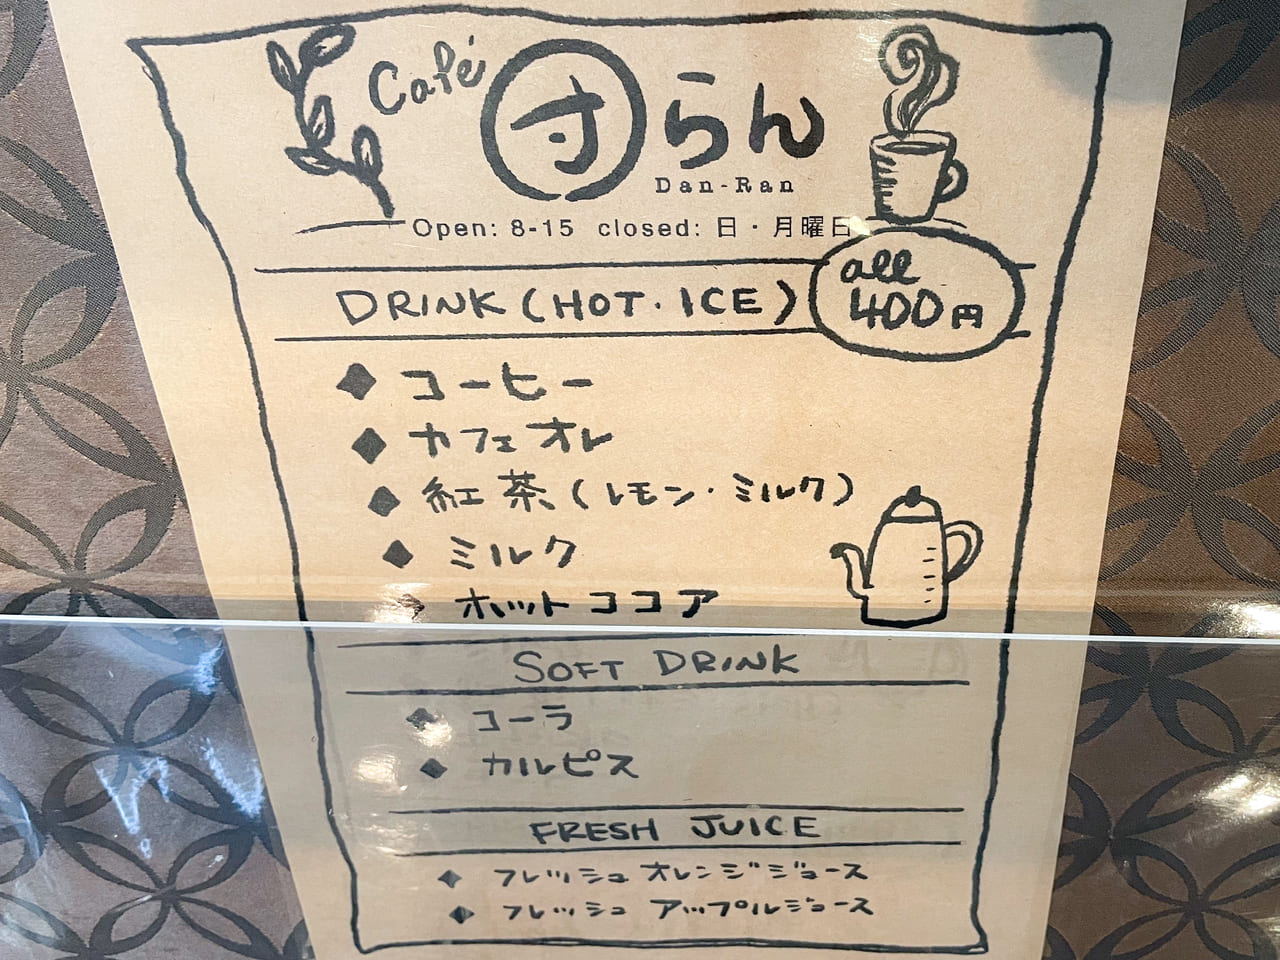 Café
団らん
Dan-Ran
Open: 8-15 closed: 日・月曜日
DRINK (HOT・ICE)
all
400円
◆ コーヒー
◆ カフェオレ
◆ 紅茶 (レモン・ミルク)
◆ ミルク
◆ ホットココア
SOFT DRINK
◆ コーラ
◆ カルピス
FRESH JUICE
◆ フレッシュ オレンジジュース
◆ フレッシュ アップルジュース